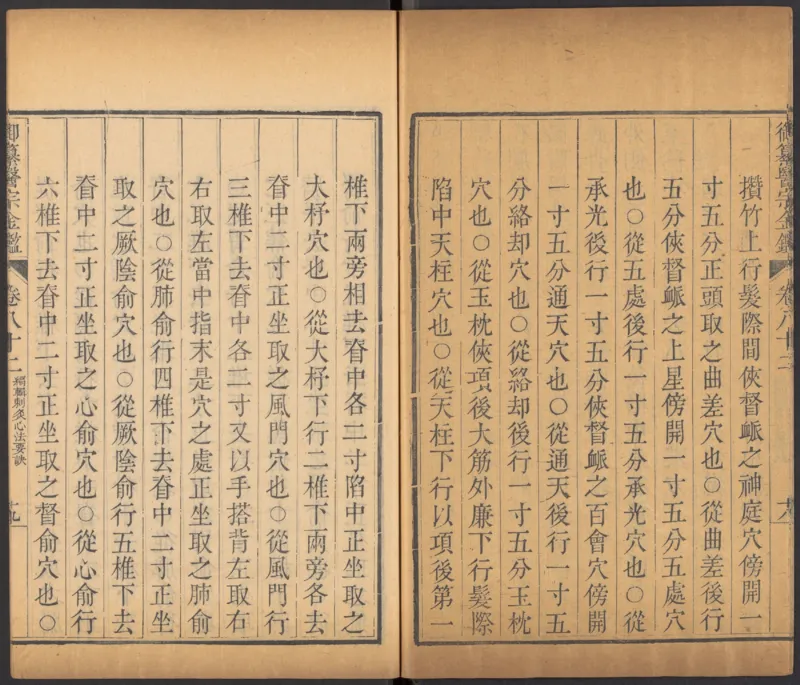 攢竹上行髮際間俠督脈之神庭穴傍開一
寸五分正頭取之曲差穴也○從曲差後行
五分俠督脈之上星傍開一寸五分五處穴
也○從五處後行一寸五分承光穴也○從
承光後行一寸五分俠督脈之百會穴傍開
一寸五分通天穴也○從通天後行一寸五
分絡却穴也○從絡却後行一寸五分玉枕
穴也○從玉枕俠項後大筋外廉下行髮際
陷中天柱穴也○從天柱下行以項後第一
椎下兩旁相去脊中各二寸陷中正坐取之
大杼穴也○從大杼下行二椎下兩旁各去
脊中二寸正坐取之風門穴也○從風門行
三椎下去脊中各二寸又以手搭背左取右
右取左當中指末是穴之處正坐取之肺俞
穴也○從肺俞行四椎下去脊中二寸正坐
取之厥陰俞穴也○從厥陰俞行五椎下去
脊中二寸正坐取之心俞穴也○從心俞行
六椎下去脊中二寸正坐取之督俞穴也○
御纂醫宗金鑑 卷八十二 編輯刺灸心法要訣 十九